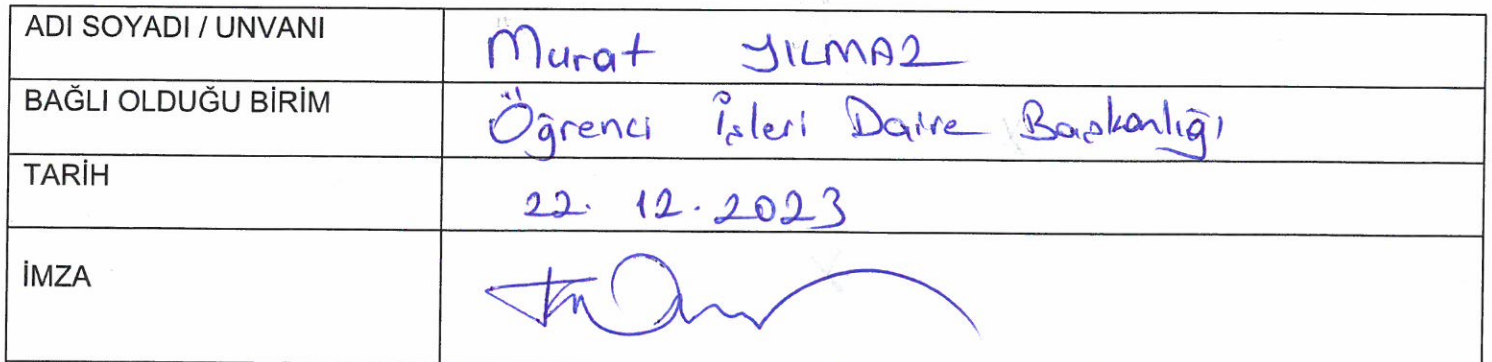 ADI SOYADI / UNVANI Murat YILMAZ
BAĞLI OLDUĞU BİRİM Öğrenci İşleri Daire Başkanlığı
TARİH 22.12.2023
İMZA